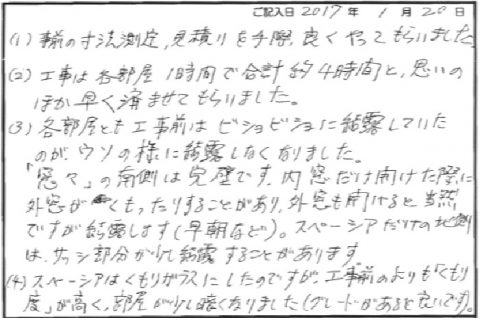 ご記入日 2017 年 1 月 20 日
(1) 事前の寸法測定, 見積りを手際良くやってもらいました
(2) 工事は各部屋 1時間で合計約4時間と, 思いの
ほか早く済ませてもらいました。
(3) 各部屋とも工事前はビショビショに結露していた
のが, ウソの様に結露しなくなりました。
「窓々」の南側は完璧です, 内窓だけ開けた際に
外窓がくもったりすることがあり, 外窓も開けると当然
ですが結露します(早朝など)。スペーシアだけの北側
は, サッシ部分が少し結露することがあります
(4) スペーシアはくもりガラスにしたのですが, 工事前のよりも「くもり
度」が高く, 部屋が少し暗くなりました(グレードがあると良いです)。